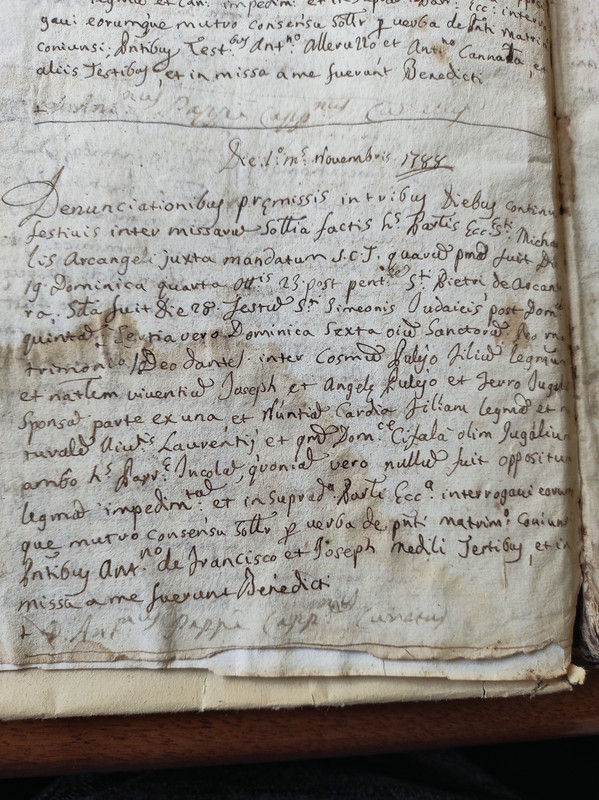 gavi eorumque mutro consensu sollr p verba de pnti matri
coniunsi; Pntibus Testbus Antno Alleruzzo et Antno Cannata, e
aliis Testibus, et in missa a me fuerunt Benedicti
Die 1o ms Novembris 1788
Denunciationibus premissis in tribus Diebus continu
festivis inter missaru sollia factis hs Parlis Eccs Sti Micha
lis Arcangeli juxta mandatum S.C.T. quaru pma fuit Di
19 Dominica quarta Ottis 23 post pent. Sti Pietri de Arcan
ra, Sda fuit die 28 festu Sm Simeonis Judaicis post Dom
quinta, Tertia vero Dominica Sexta oiu Sanctoru Pro ma
trimonio Deo dante inter Cosmu Pulejo Filiu legmum
et natlem viventiu Joseph et Angele Pulejo et Ferro Jugal
sponsa parte ex una, et Nuntia Cardia Filiam legma et n
turale viutis Laurentij et qm Domce Cifala olim Jugaliu
ambo hs Parre Incola, quonia vero nullu fuit oppositu
legma impedimtu et in suprada Parli Ecca interrogavi eoru
que mutro consensu sollr p verba de pnti matrimo coniun
Pntibus Antno de Francisco et Joseph Medili Testibus, et in
missa a me fuerunt Benedicti
+ D. Antnius Pappi Cappnus Curatus